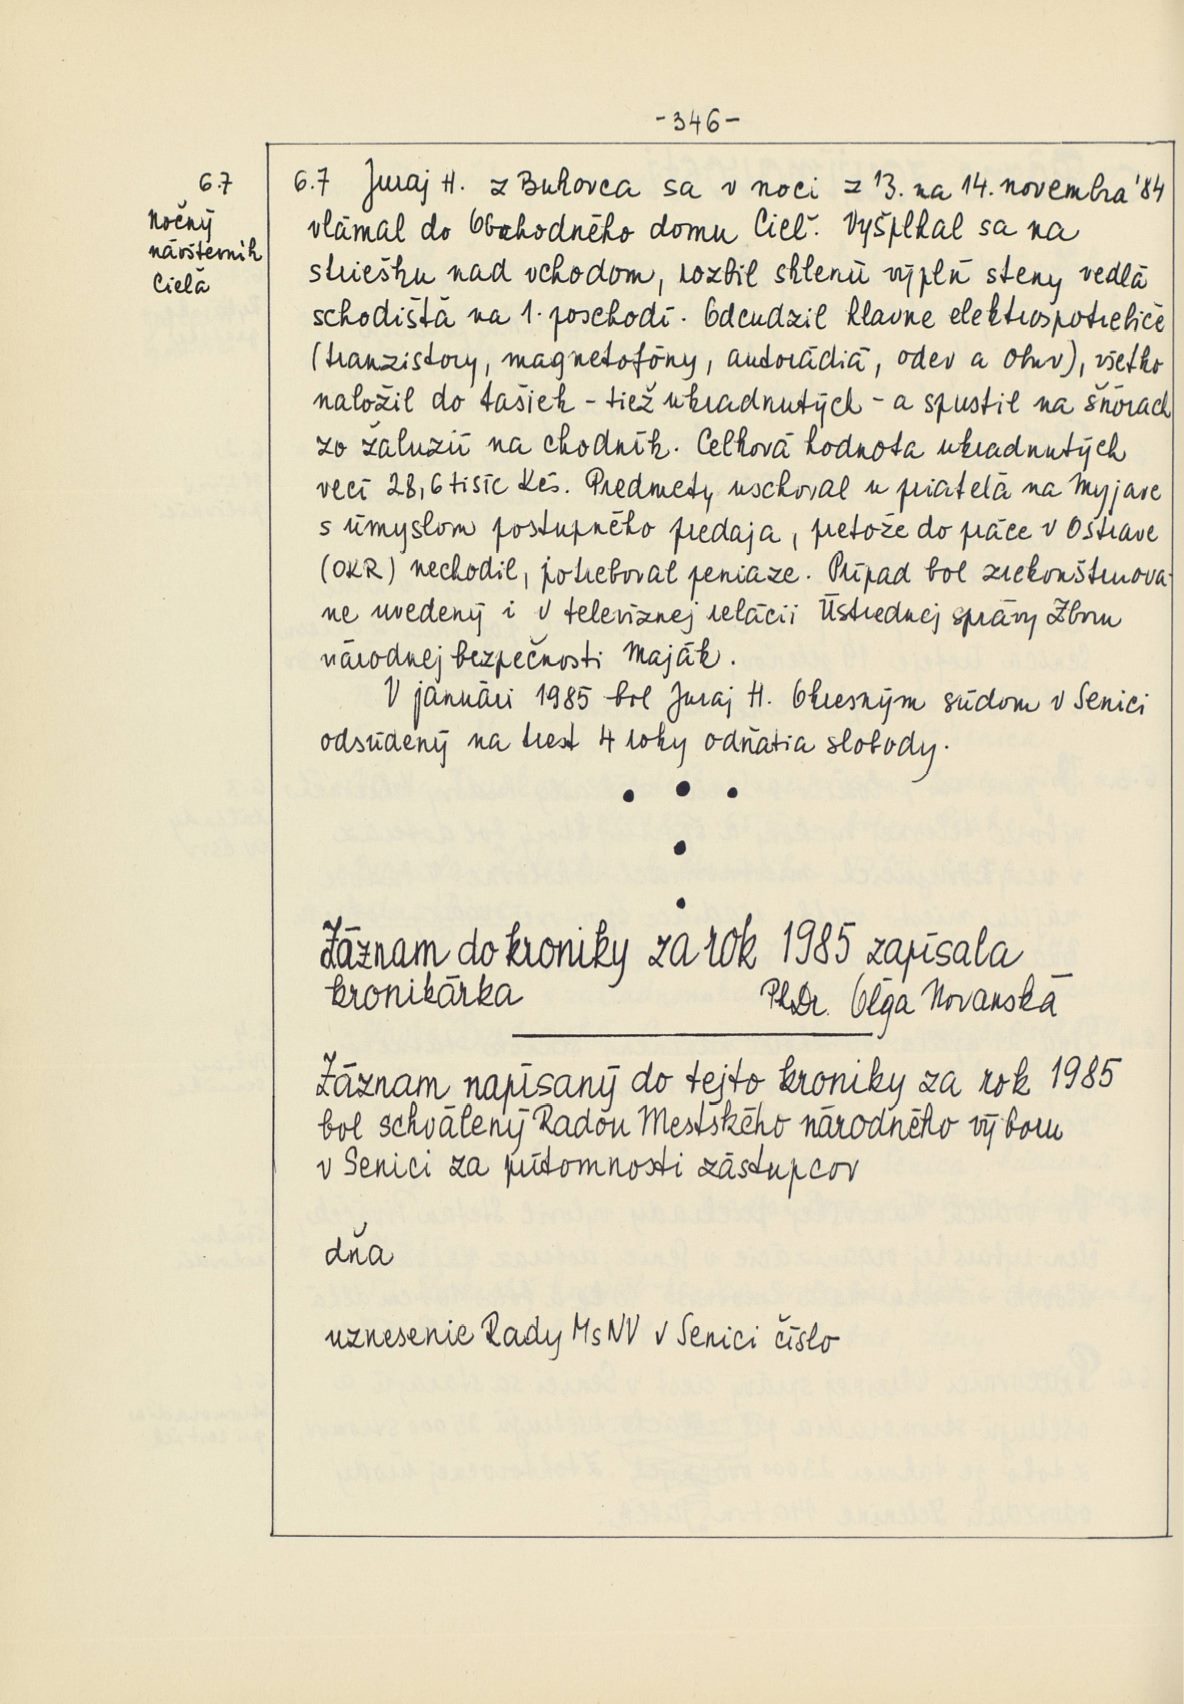 -346-
6.7
Nočný
návštevník
Cieľa
6.7 Juraj H. z Bukovca sa v noci z 13. na 14. novembra '84
vlámal do Obchodného domu Cieľ. Vyšplhal sa na
striešku nad vchodom, rozbil sklenú výplň steny vedľa
schodišťa na 1. poschodí. Odcudzil hlavne elektrospotrebiče
(tranzistory, magnetofóny, autorádiá, odev a obuv), všetko
naložil do tašiek - tiež ukradnutých - a spustil na šňórach
zo žaluzií na chodník. Celková hodnota ukradnutých
vecí 28,6 tisíc Kčs. Predmety uschoval u priateľa na Myjave
s úmyslom postupného predaja, pretože do práce v Ostrave
(OKR) nechodil, potreboval peniaze. Prípad bol zrekonštruova-
ne uvedený i v televíznej relácii Ústrednej správy Zboru
národnej bezpečnosti Maják.
V januári 1985 bol Juraj H. Okresným súdom v Senici
odsúdený na trest 4 roky odňatia slobody.
Záznam do kroniky za rok 1985 zapísala
kronikárka PhDr. Oľga Novanská
Záznam napísaný do tejto kroniky za rok 1985
bol schválený Radou Mestského národného výboru
v Senici za prítomnosti zástupcov
dňa
uznesenie Rady MsNV v Senici číslo